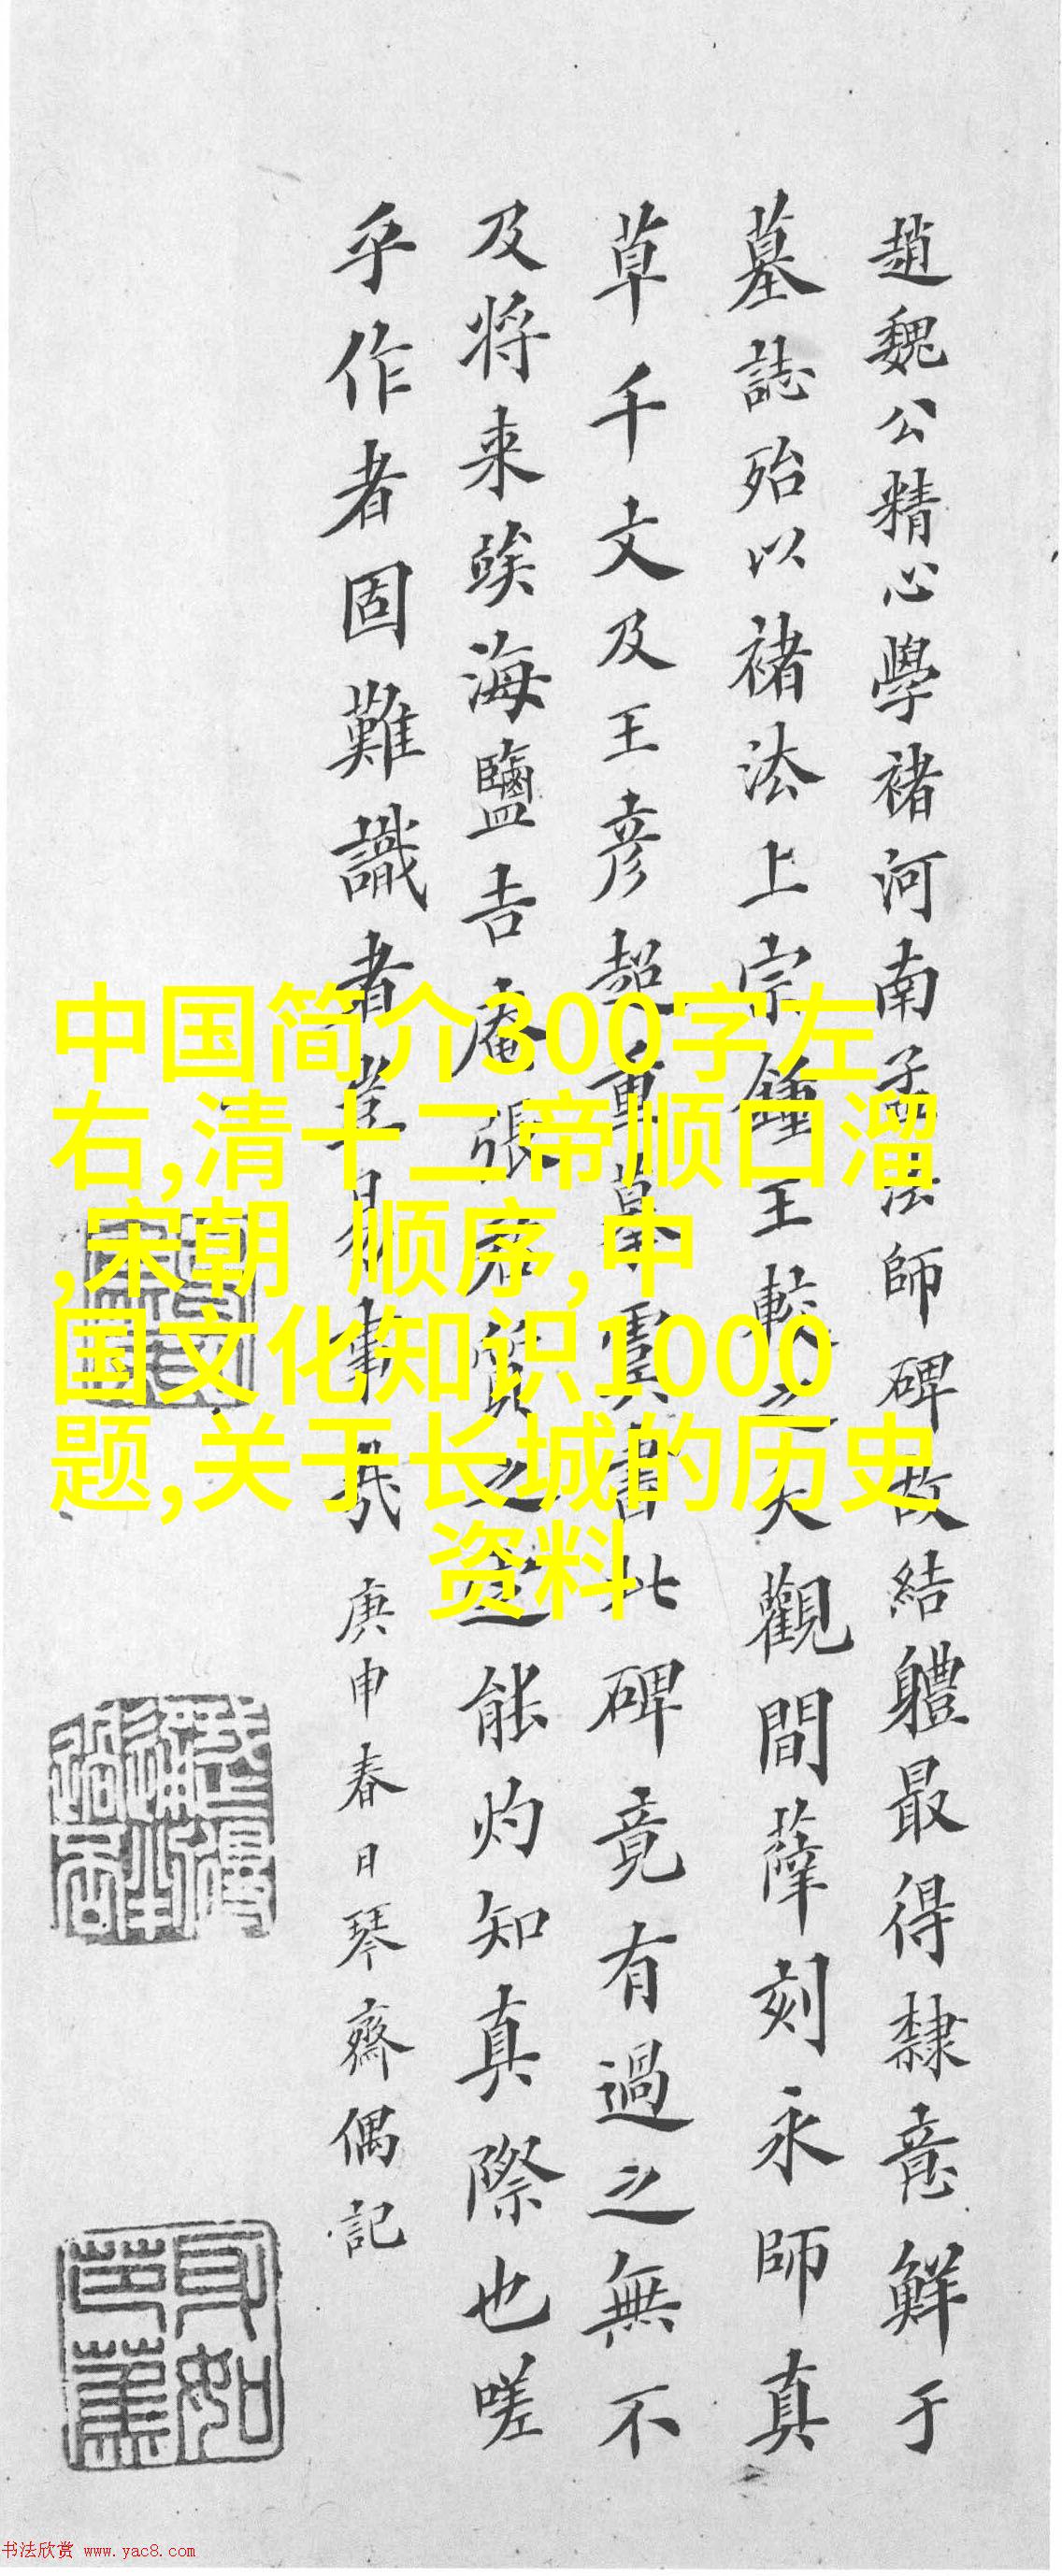 趙魏公精心學褚河南孟法師碑故結軆最得隸意鮮于
墓誌殆以褚法上宗鍾王較之大觀間薛刻永師真
草千文及王彦超重摹虞書此碑竟有過之無不
及将来竢海鹽吉庵張君質之定能灼知真際也嗟
乎作者固難識者豈易事哉
庚申春日琴齋偶記
中国简介300字左
右,清十二帝顺口溜
,宋朝 顺序,中
国文化知识1000
题,关于长城的历史
资料
书法欣赏 www.yac8.com